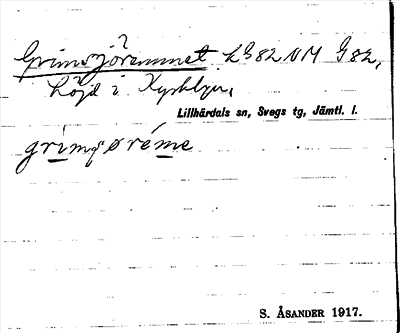 Grimsjöremmet LG82 NM G82,
höjd i Kyrkbyn,
Lillhärdals sn, Svegs tg, Jämtl. l.
grimsøréme
S. ÅSANDER 1917.